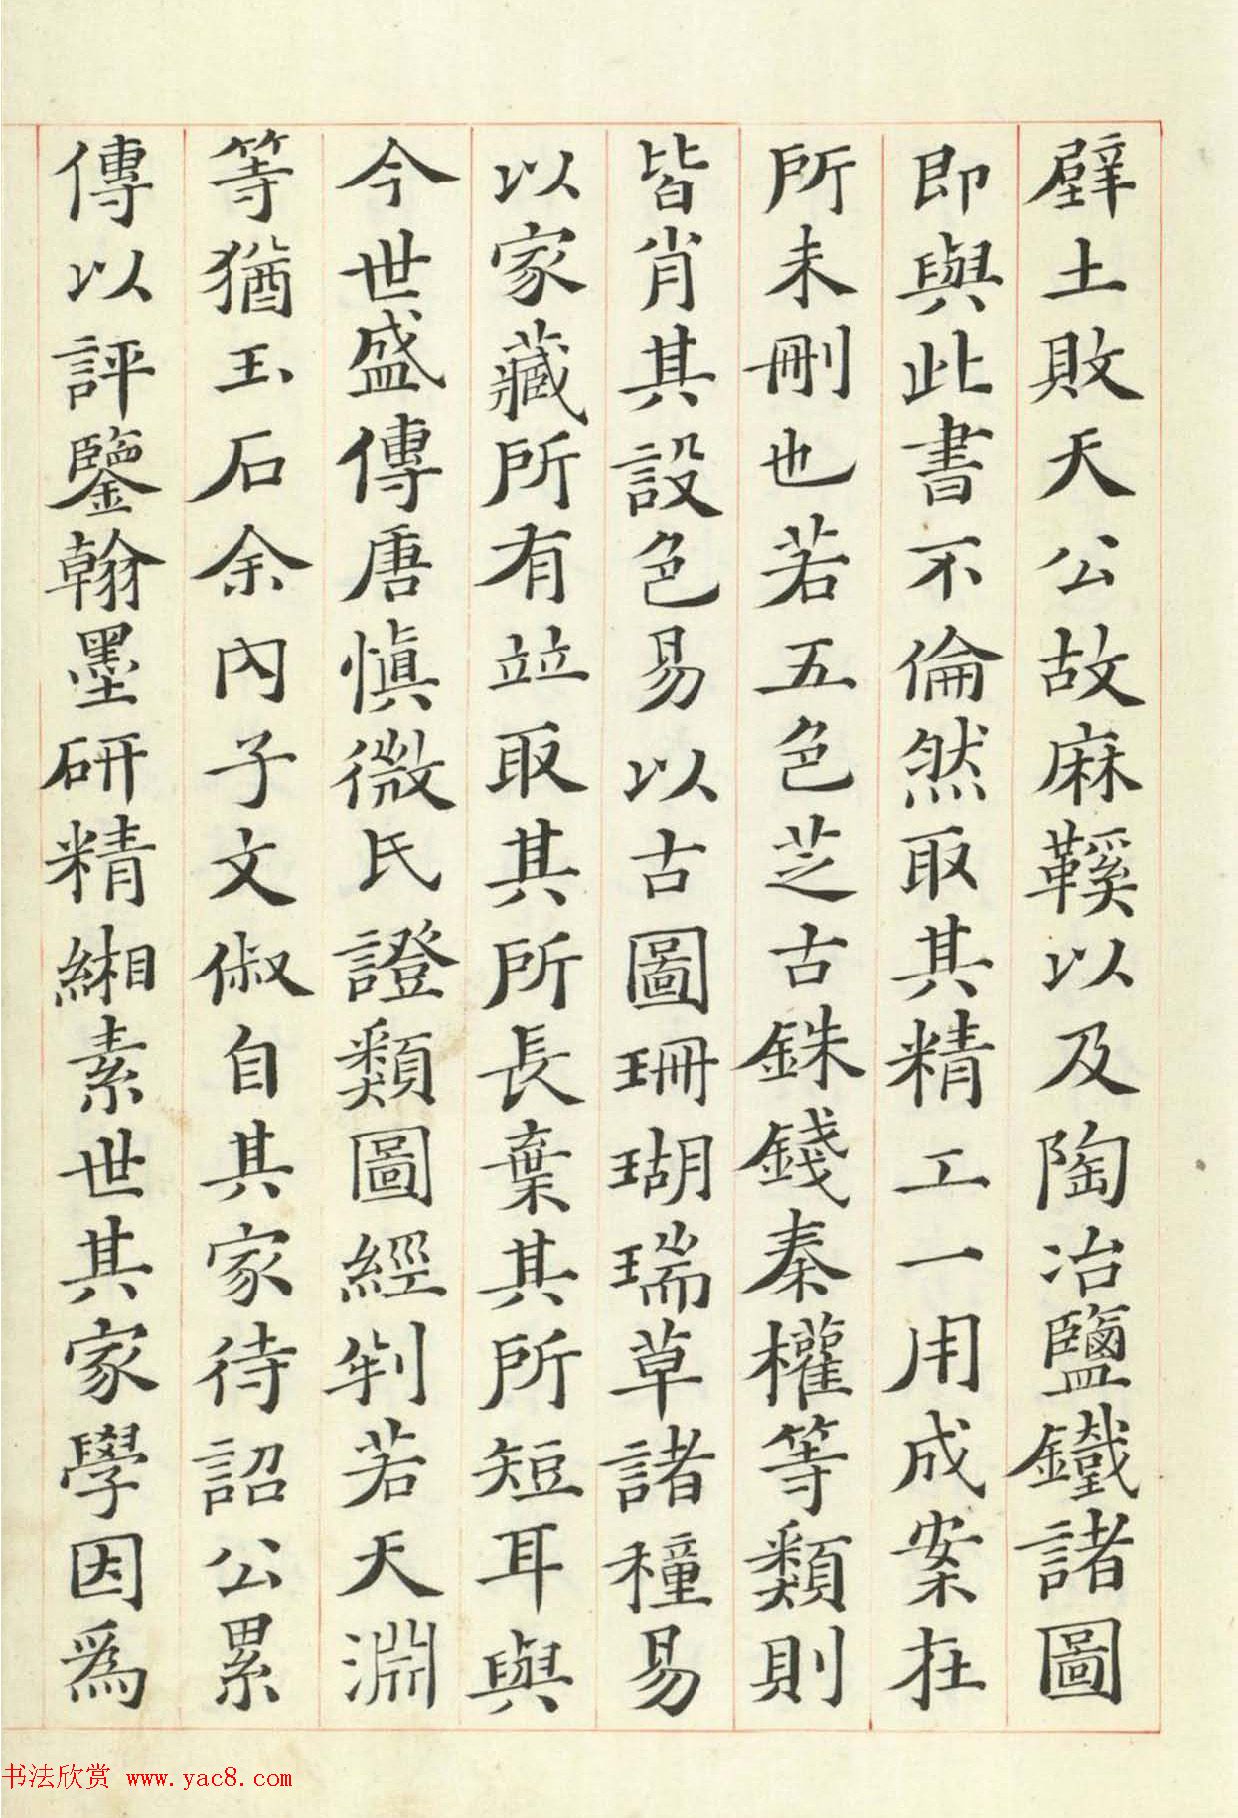 壁土敗天公故麻鞵以及陶冶鹽鐵諸圖
即與此書不倫然取其精工一用成案在
所未刪也若五色芝古銖錢秦權等類則
皆肖其設色易以古圖珊瑚瑞草諸種易
以家藏所有竝取其所長棄其所短耳與
今世盛傳唐慎微氏證類圖經判若天淵
等猶玉石余內子文俶自其家待詔公累
傳以評鑒翰墨研精緗素世其家學因為
书法欣赏 www.yac8.com